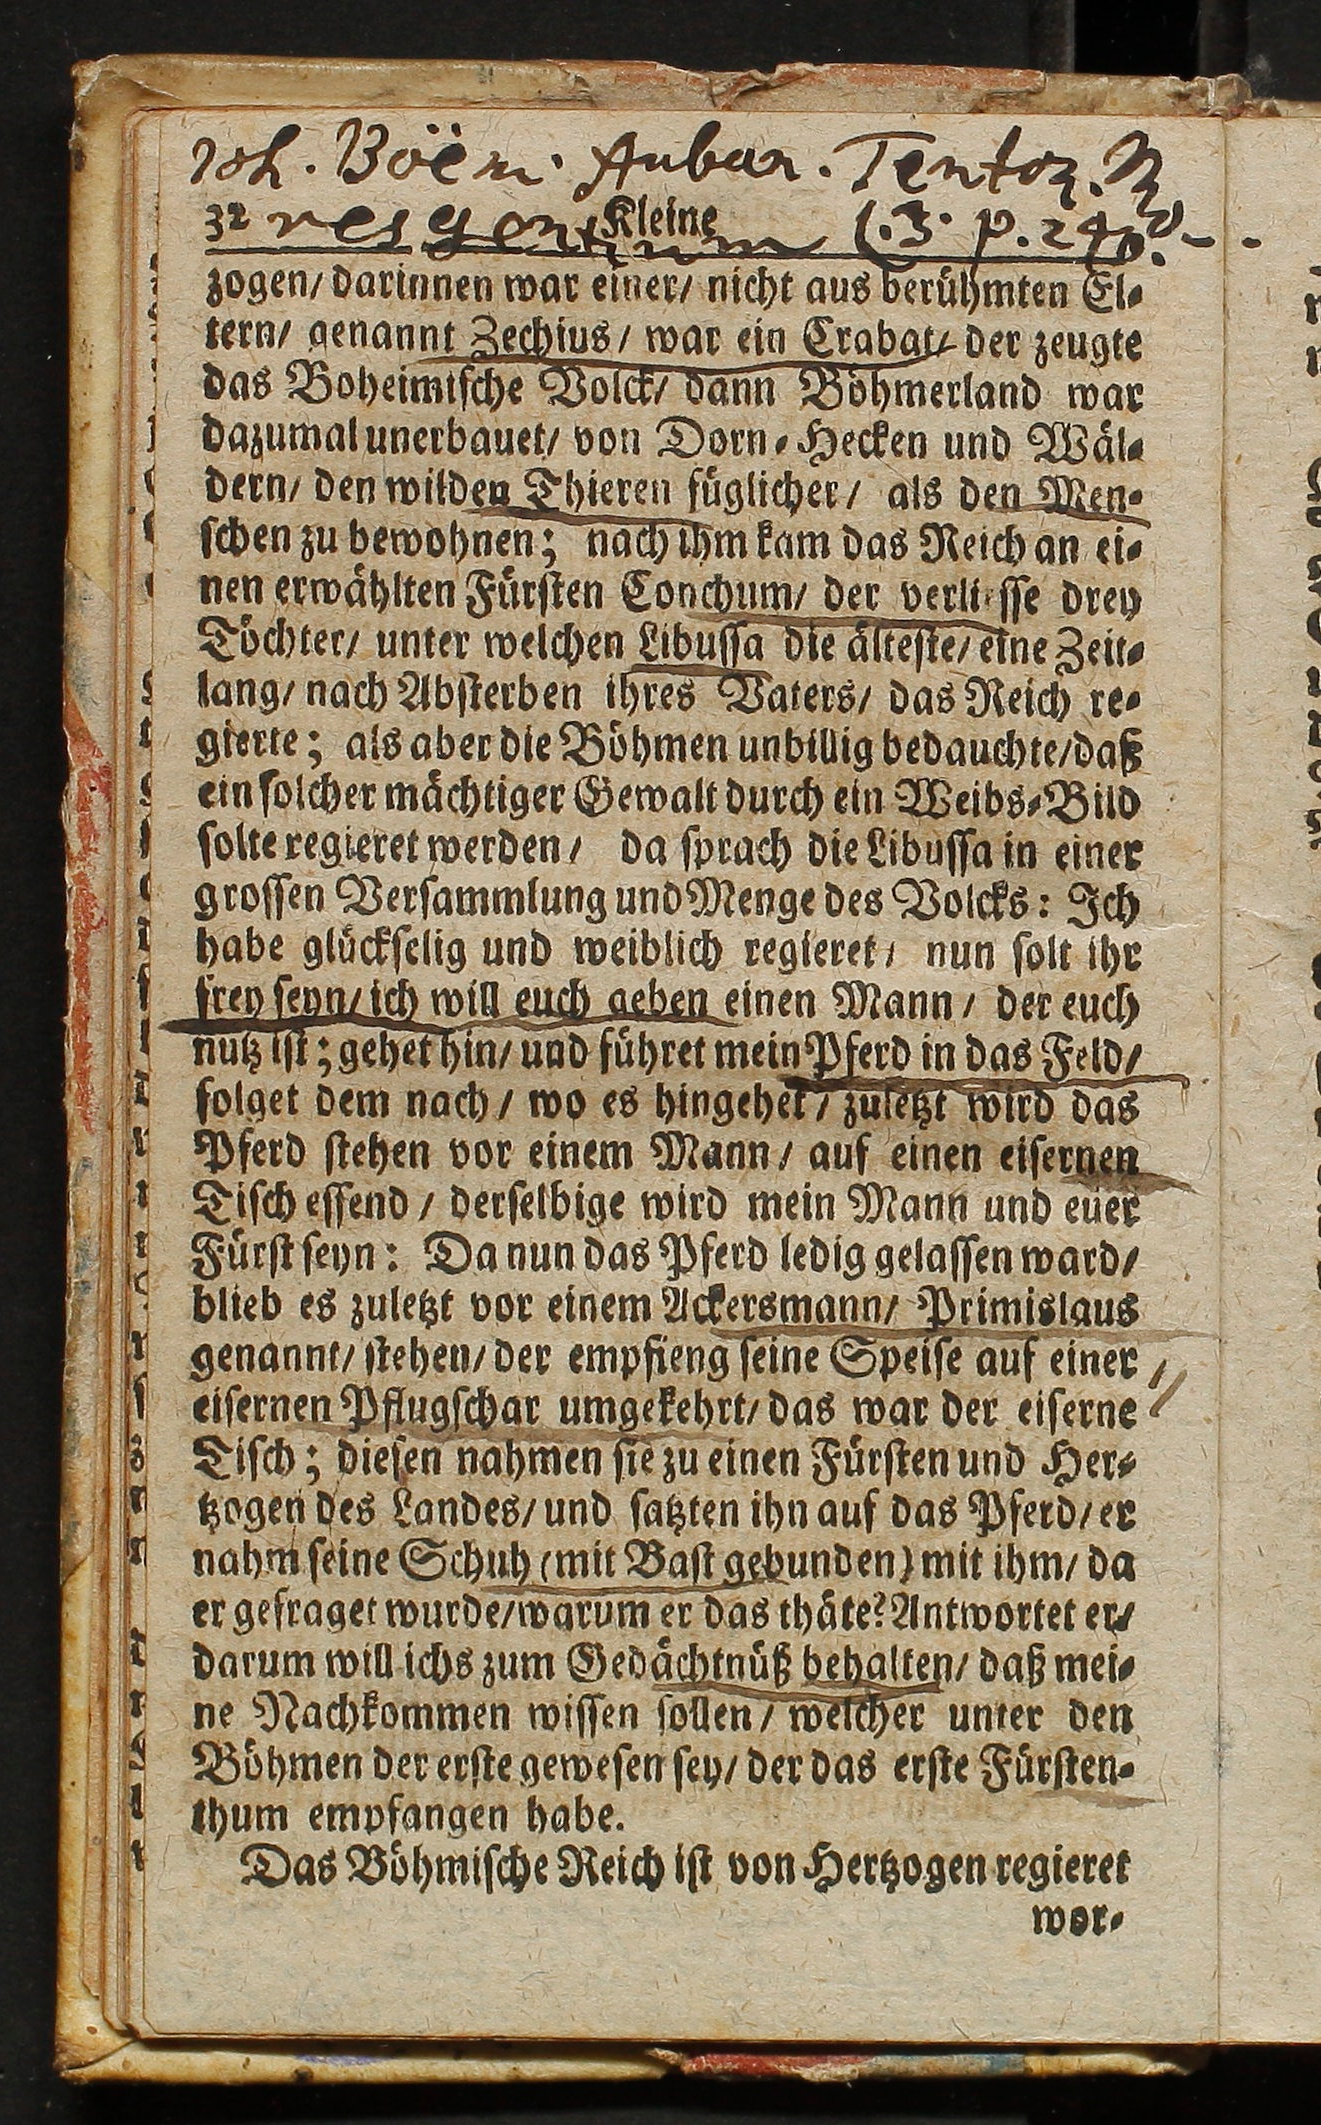 Joh. Boëm. Auban. Tenton. M
32 Kleine
res gentium l. 3. p. 240.
zogen/ darinnen war einer/ nicht aus berühmten El-
tern/ genannt Zechius/ war ein Crabat/ der zeugte
das Boheimische Volck/ dann Böhmerland war
dazumal unerbauet/ von Dorn-Hecken und Wäl-
dern/ den wilden Thieren füglicher/ als den Men-
schen zu bewohnen; nach ihm kam das Reich an ei-
nen erwählten Fürsten Conchum/ der verliesse drey
Töchter/ unter welchen Libussa die älteste/ eine Zeit-
lang/ nach Absterben ihres Vaters/ das Reich re-
gierte; als aber die Böhmen unbillig bedauchte/ daß
ein solcher mächtiger Gewalt durch ein Weibs-Bild
solte regieret werden/ da sprach die Libussa in einer
grossen Versammlung und Menge des Volcks: Ich
habe glückselig und weiblich regieret/ nun solt ihr
frey seyn/ ich will euch geben einen Mann/ der euch
nutz ist; gehet hin/ und führet mein Pferd in das Feld/
folget dem nach/ wo es hingehet/ zuletzt wird das
Pferd stehen vor einem Mann/ auf einen eisernen
Tisch essend/ derselbige wird mein Mann und euer
Fürst seyn: Da nun das Pferd ledig gelassen ward/
blieb es zuletzt vor einem Ackersmann/ Primislaus
genannt/ stehen/ der empfieng seine Speise auf einer
eisernen Pflugschar umgekehrt/ das war der eiserne
Tisch; diesen nahmen sie zu einen Fürsten und Her-
tzogen des Landes/ und satzten ihn auf das Pferd/ er
nahm seine Schuh (mit Bast gebunden) mit ihm/ da
er gefraget wurde/ warum er das thäte? Antwortet er/
darum will ichs zum Gedächtnüß behalten/ daß mei-
ne Nachkommen wissen sollen/ welcher unter den
Böhmen der erste gewesen sey/ der das erste Fürsten-
thum empfangen habe.
Das Böhmische Reich ist von Hertzogen regieret
wor-